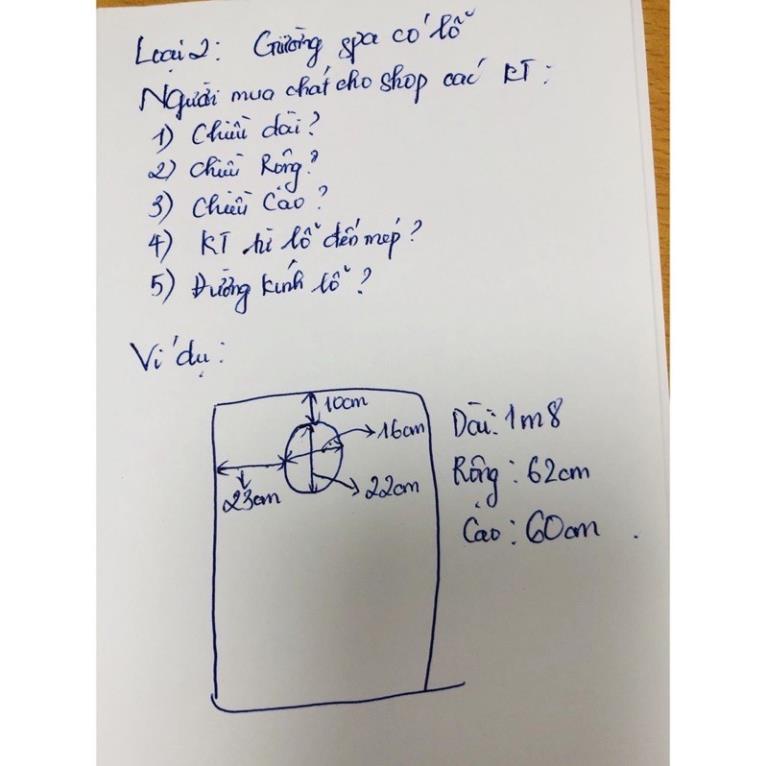 Loại 2: Giường spa có lỗ
Người mua chat cho shop các KT:
1) Chiều dài?
2) Chiều Rộng?
3) Chiều Cao?
4) KT từ lỗ đến mép?
5) Đường kính lỗ?
Ví dụ:
10cm
16cm
22cm
23cm
Dài: 1m8
Rộng: 62cm
Cao: 60cm.